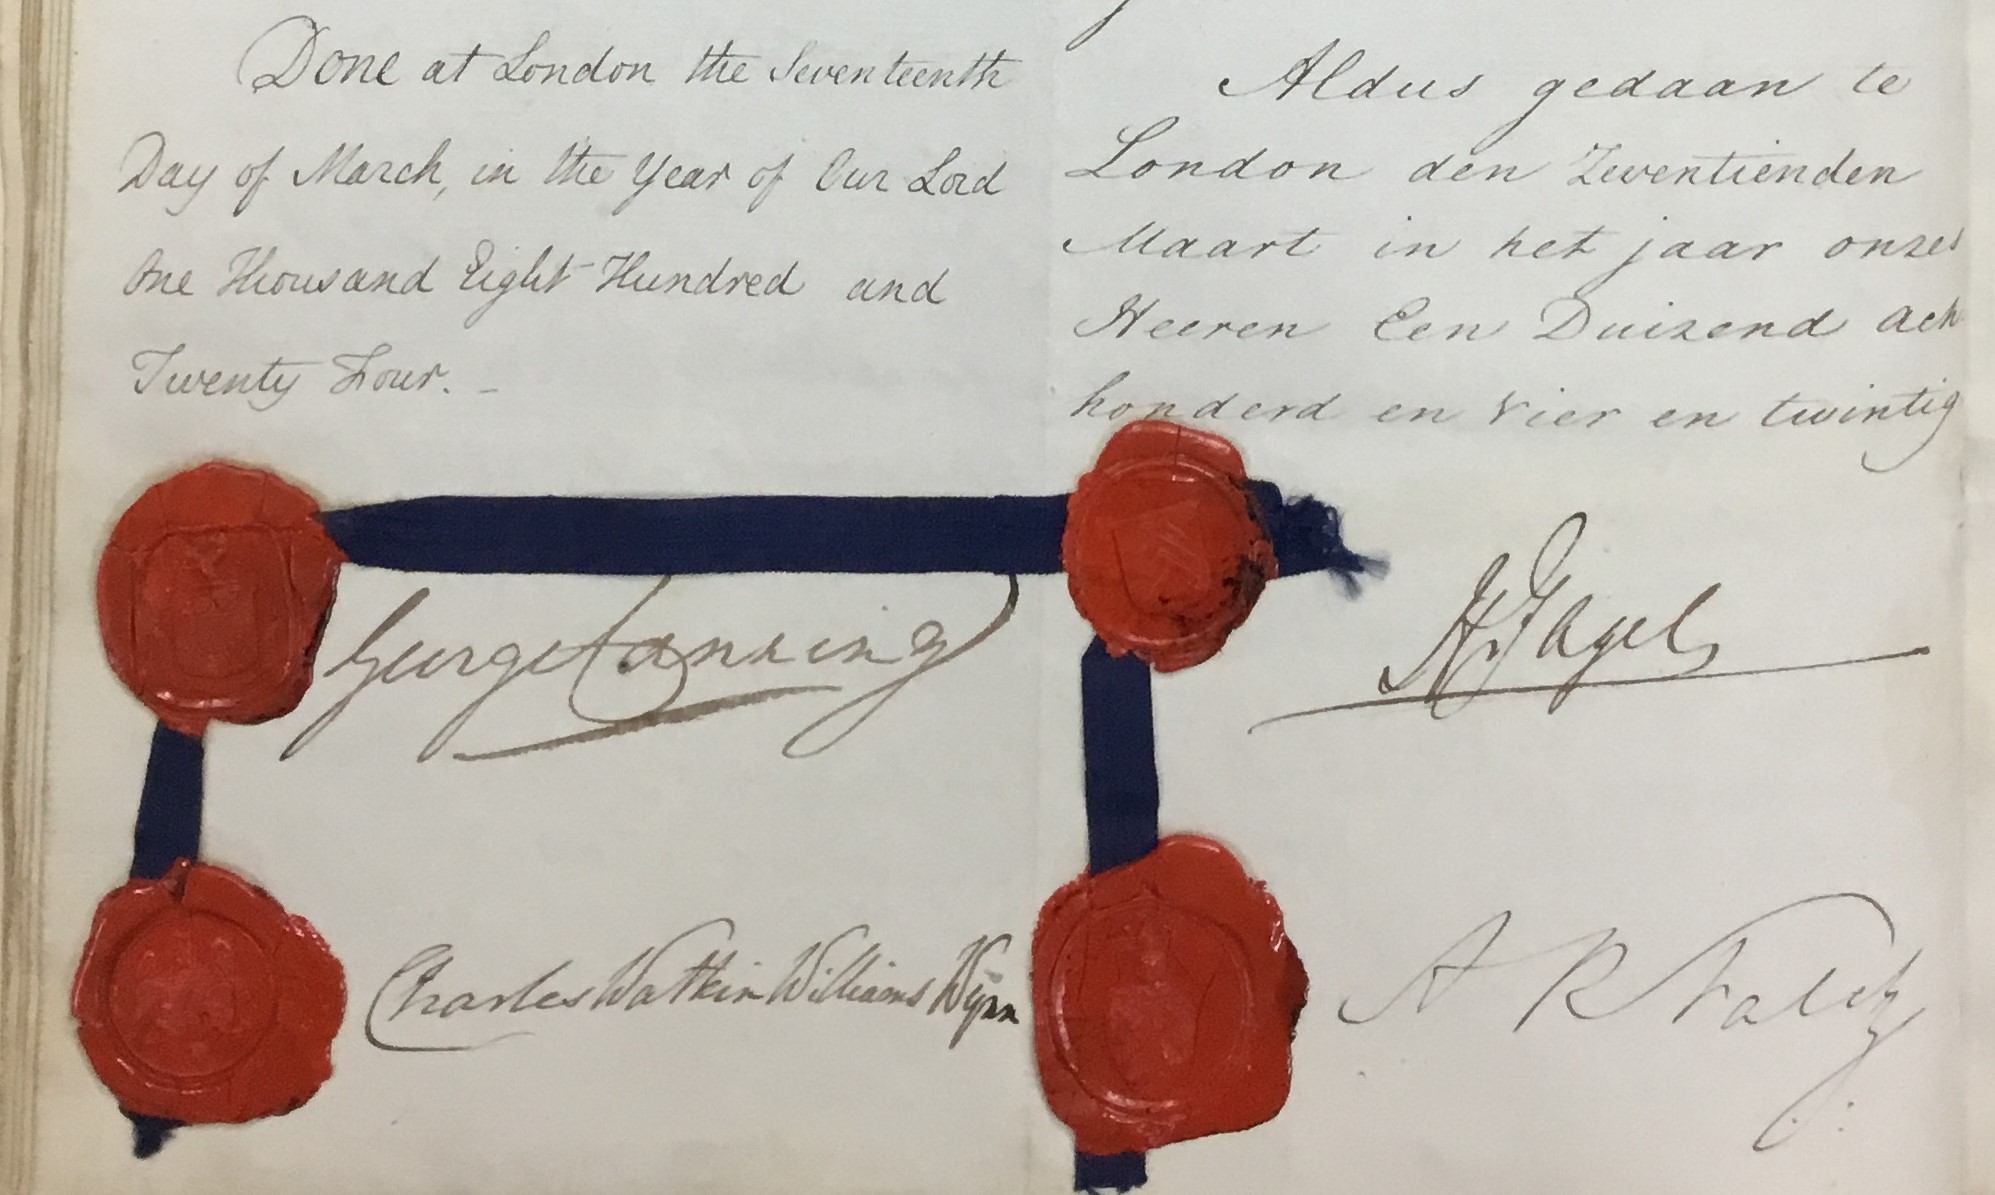 Done at London the Seventeenth
Day of March, in the Year of Our Lord
One Thousand Eight Hundred and
Twenty Four. _
George Canning
Charles Watkin Williams Wynn
Aldus gedaan te
London den Zeventienden
Maart in het jaar onzes
Heeren Een Duizend ach
honderd en vier en twintig
H Fagel
A R Falck